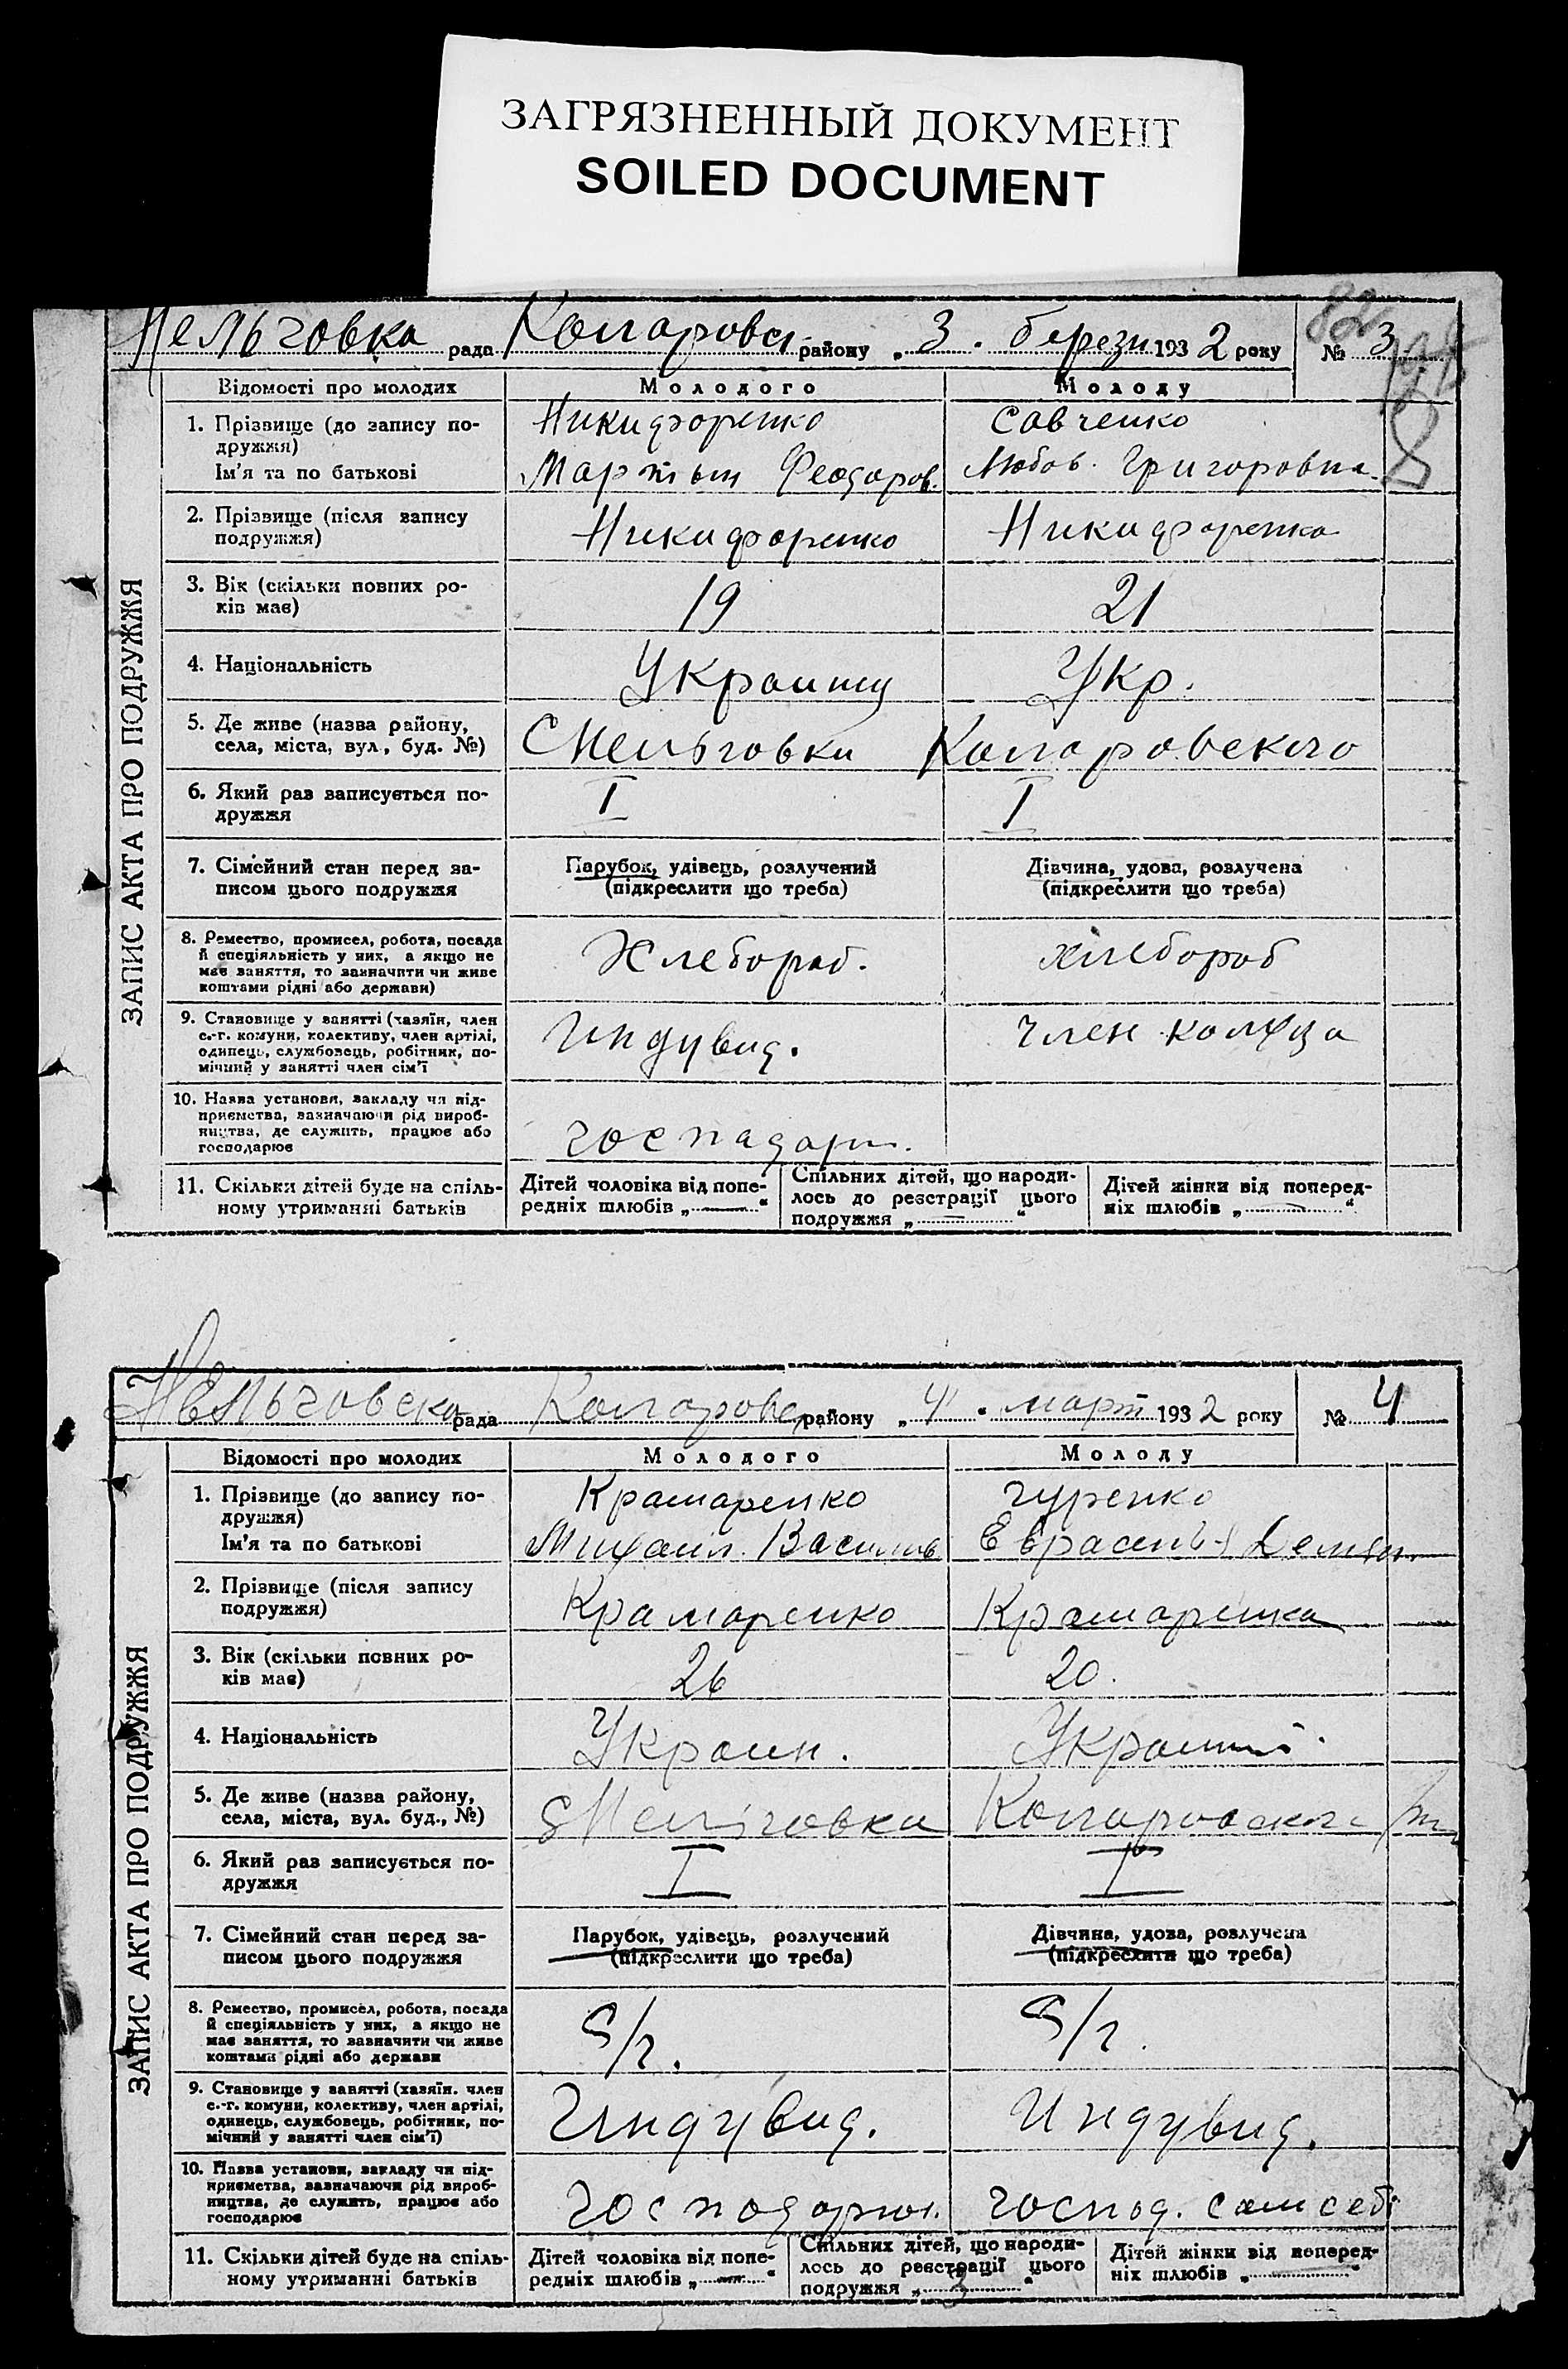 ЗАГРЯЗНЕННЫЙ ДОКУМЕНТ
SOILED DOCUMENT
82
рада района „ 3 . березн 1932 року № 3
ЗАПИС АКТА ПРО ПОДРУЖЖЯ
Відомості про молодих Молодого Молоду
1. Прізвище (до запису по-
дружжя)
Никифоренко Савченко
Ім'я та по батькові Мартын Феодоров. Любов. Григоровна
2. Прізвище (після запису
подружжя)
Никифоренко Никифоренко
3. Вік (скільки повних ро-
ків має)
19 21
4. Національність Укр.
5. Де живе (назва району,
села, міста, вул., буд. №)
6. Який раз записується по-
дружжя
I I
7. Сімейний стан перед за-
писом цього подружжя
Парубок, удівець, розлучений
(підкреслити що треба)
Дівчина, удова, розлучена
(підкреслити що треба)
8. Ремество, промисел, робота, посада
й спеціяльність у них, а якщо не
має заняття, то зазначити чи живе
коштами рідні або держави)
Хлебороб. хлебороб
9. Становище у занятті (хазяїн, член
с.-г. комуни, колективу, член артілі,
одинець, службовець, робітник, по-
мічний у занятті член сім'ї
Индувид. член
10. Назва установи, закладу чи під-
приємства, зазначаючи рід вироб-
ництва, де служить, працює або
господарює
11. Скільки дітей буде на спіль-
ному утриманні батьків
Дітей чоловіка від попе-
редніх шлюбів „ — “
Спільних дітей, що народи-
лось до реєстрації цього
подружжя „ — “
Дітей жінки від поперед-
ніх шлюбів „ — “
рада району „ 4 . март 1932 року № 4
ЗАПИС АКТА ПРО ПОДРУЖЖЯ
Відомості про молодих Молодого Молоду
1. Прізвище (до запису по-
дружжя)
Крамаренко Гуренко
Ім'я та по батькові Михаил
2. Прізвище (після запису
подружжя)
Крамаренко Крамаренка
3. Вік (скільки повних ро-
ків має)
26 20.
4. Національність Украин.
5. Де живе (назва району,
села, міста, вул. буд., №)
6. Який раз записується по-
дружжя
I I
7. Сімейний стан перед за-
писом цього подружжя
Парубок, удівець, розлучений
(підкреслити що треба)
Дівчина, удова, розлучена
(підкреслити що треба)
8. Ремество, промисел, робота, посада
й спеціяльність у них, а якщо не
має заняття, то зазначити чи живе
коштами рідні або держави
С/г. С/г.
9. Становище у занятті (хазяїн. член
с.-г. комуни, колективу, член артілі,
одинець, службовець, робітник, по-
мічний у занятті член сім'ї)
Индувид. Индувид.
10. Назва установи, закладу чи під-
приємства, зазначаючи рід вироб-
ництва, де служить, працює або
господарює
господ. сам себі
11. Скільки дітей буде на спіль-
ному утриманні батьків
Дітей чоловіка від попе-
редніх шлюбів „ — “
Спільних дітей, що народи-
лось до реєстрації цього
подружжя „ “
Дітей жінки від поперед-
ніх шлюбів „ — “